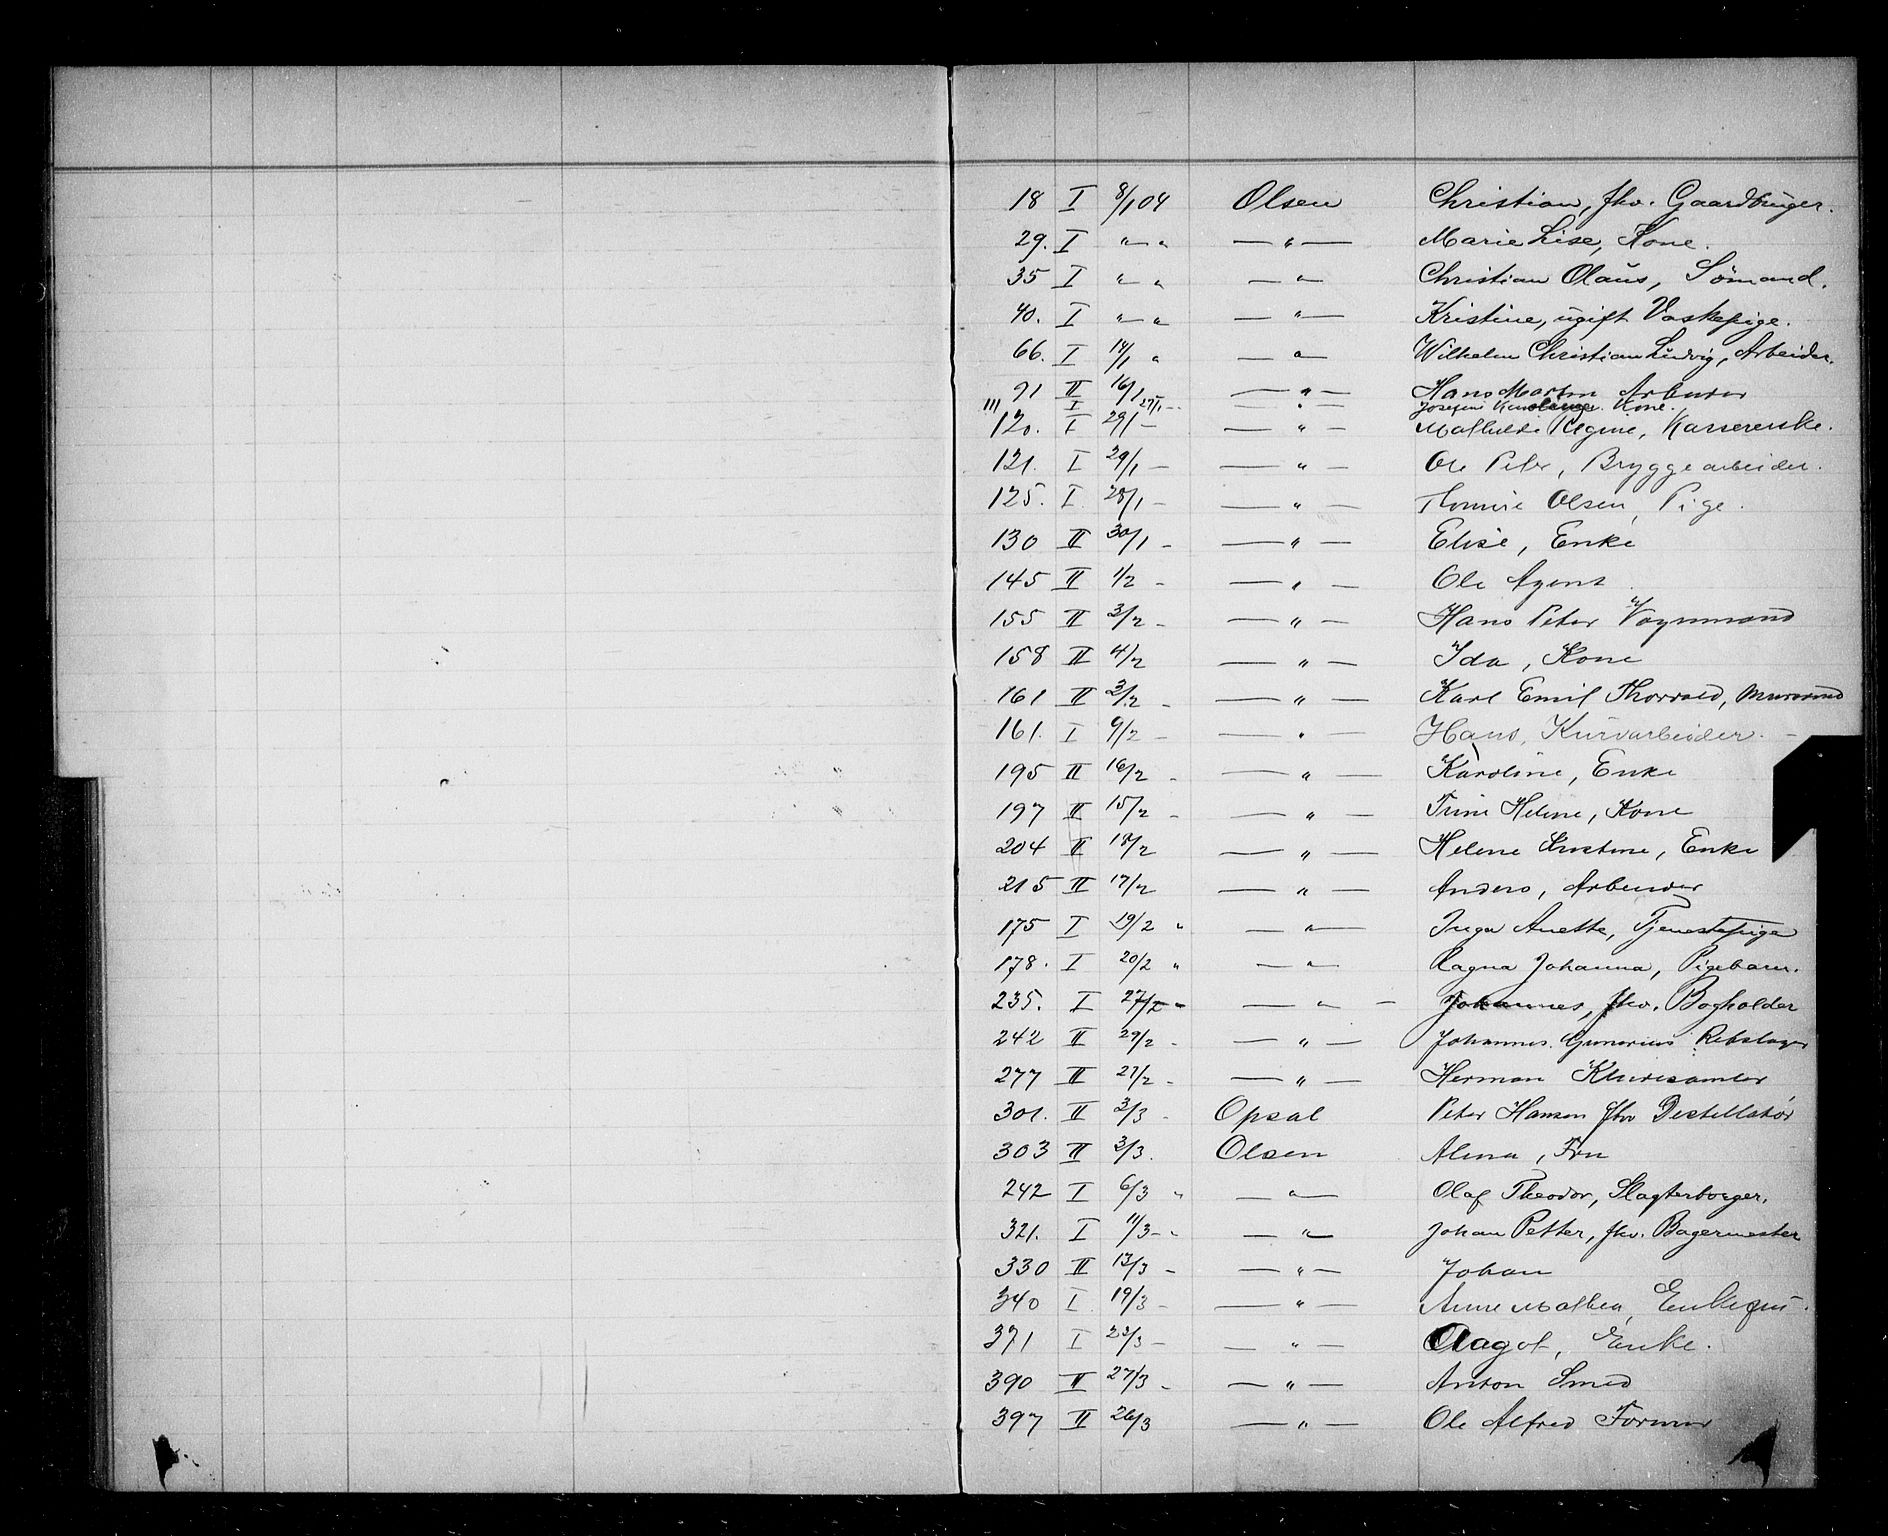 18 I 8/1 04 Olsen Christian, fhv. Gaardbruger.
29. I " — " — " — Marie Lise, Kone.
35 I " — " — " — Christian Olaus, Sømand.
40. I " — " — " — Kristine, ugift Vaskepige.
66. I 14/1 " — " — Wilhelm Christian Ludvig, Arbeider.
91 II 16/1 — " — Hans Martin Arbeider
111 I 27/1 - — " — Josefine Kone.
120. I 29/1 - — " — Mathilde Regine, Kassererske.
121. I 29/1 - — " — Ole Peter, Bryggearbeider.
125. I 28/1 - — " — Olsen, Pige.
130 II 30/1 - — " — Elise, Enke
145 II 1/2 - — " — Ole Agent
155 II 3/2 - — " — Hans Peter Vognmand
158 II 4/2 — " — Ida, Kone
161 II 3/2 - — " — Karl Emil Thorvald, Murermand
161. I 9/2 - — " — Hans, Kurvarbeider. -
195 II 16/2 - — " — Karoline, Enke
197 II 15/2 - — " — Trine Helene, Kone
204 II 18/2 — " — Helene Kristine, Enke
215 II 17/2 — " — Anders, Arbeider
175 I 19/2 " — " — Inga Anette, Tjenestepige
178. I 20/2 " — " — Ragna Johanna, Pigebarn.
235. I 27/2 - — " — Johannes, fhv. Bogholder
242 II 29/2 - — " — Johannes Gunerius Rebslager
277 II 27/2 - — " — Herman Kludesamler
301. II 3/3 - Opsal Peter Hansen fhv Destillatør
303 II 3/3. Olsen Alma, Fru
242 I 6/3 " — " — Olaf Theodor, Slagterborger.
321. I 11/3 - " — " — Johan Petter, fhv. Bagermester
330 II 13/3 - — " — Johan
340 I 19/3 - — " — Anne Mathea,
371 I 23/3 - — " — Aagot, Enke.
390 II 27/3 - — " — Anton Smed
397 II 26/3 — " — Ole Alfred Former